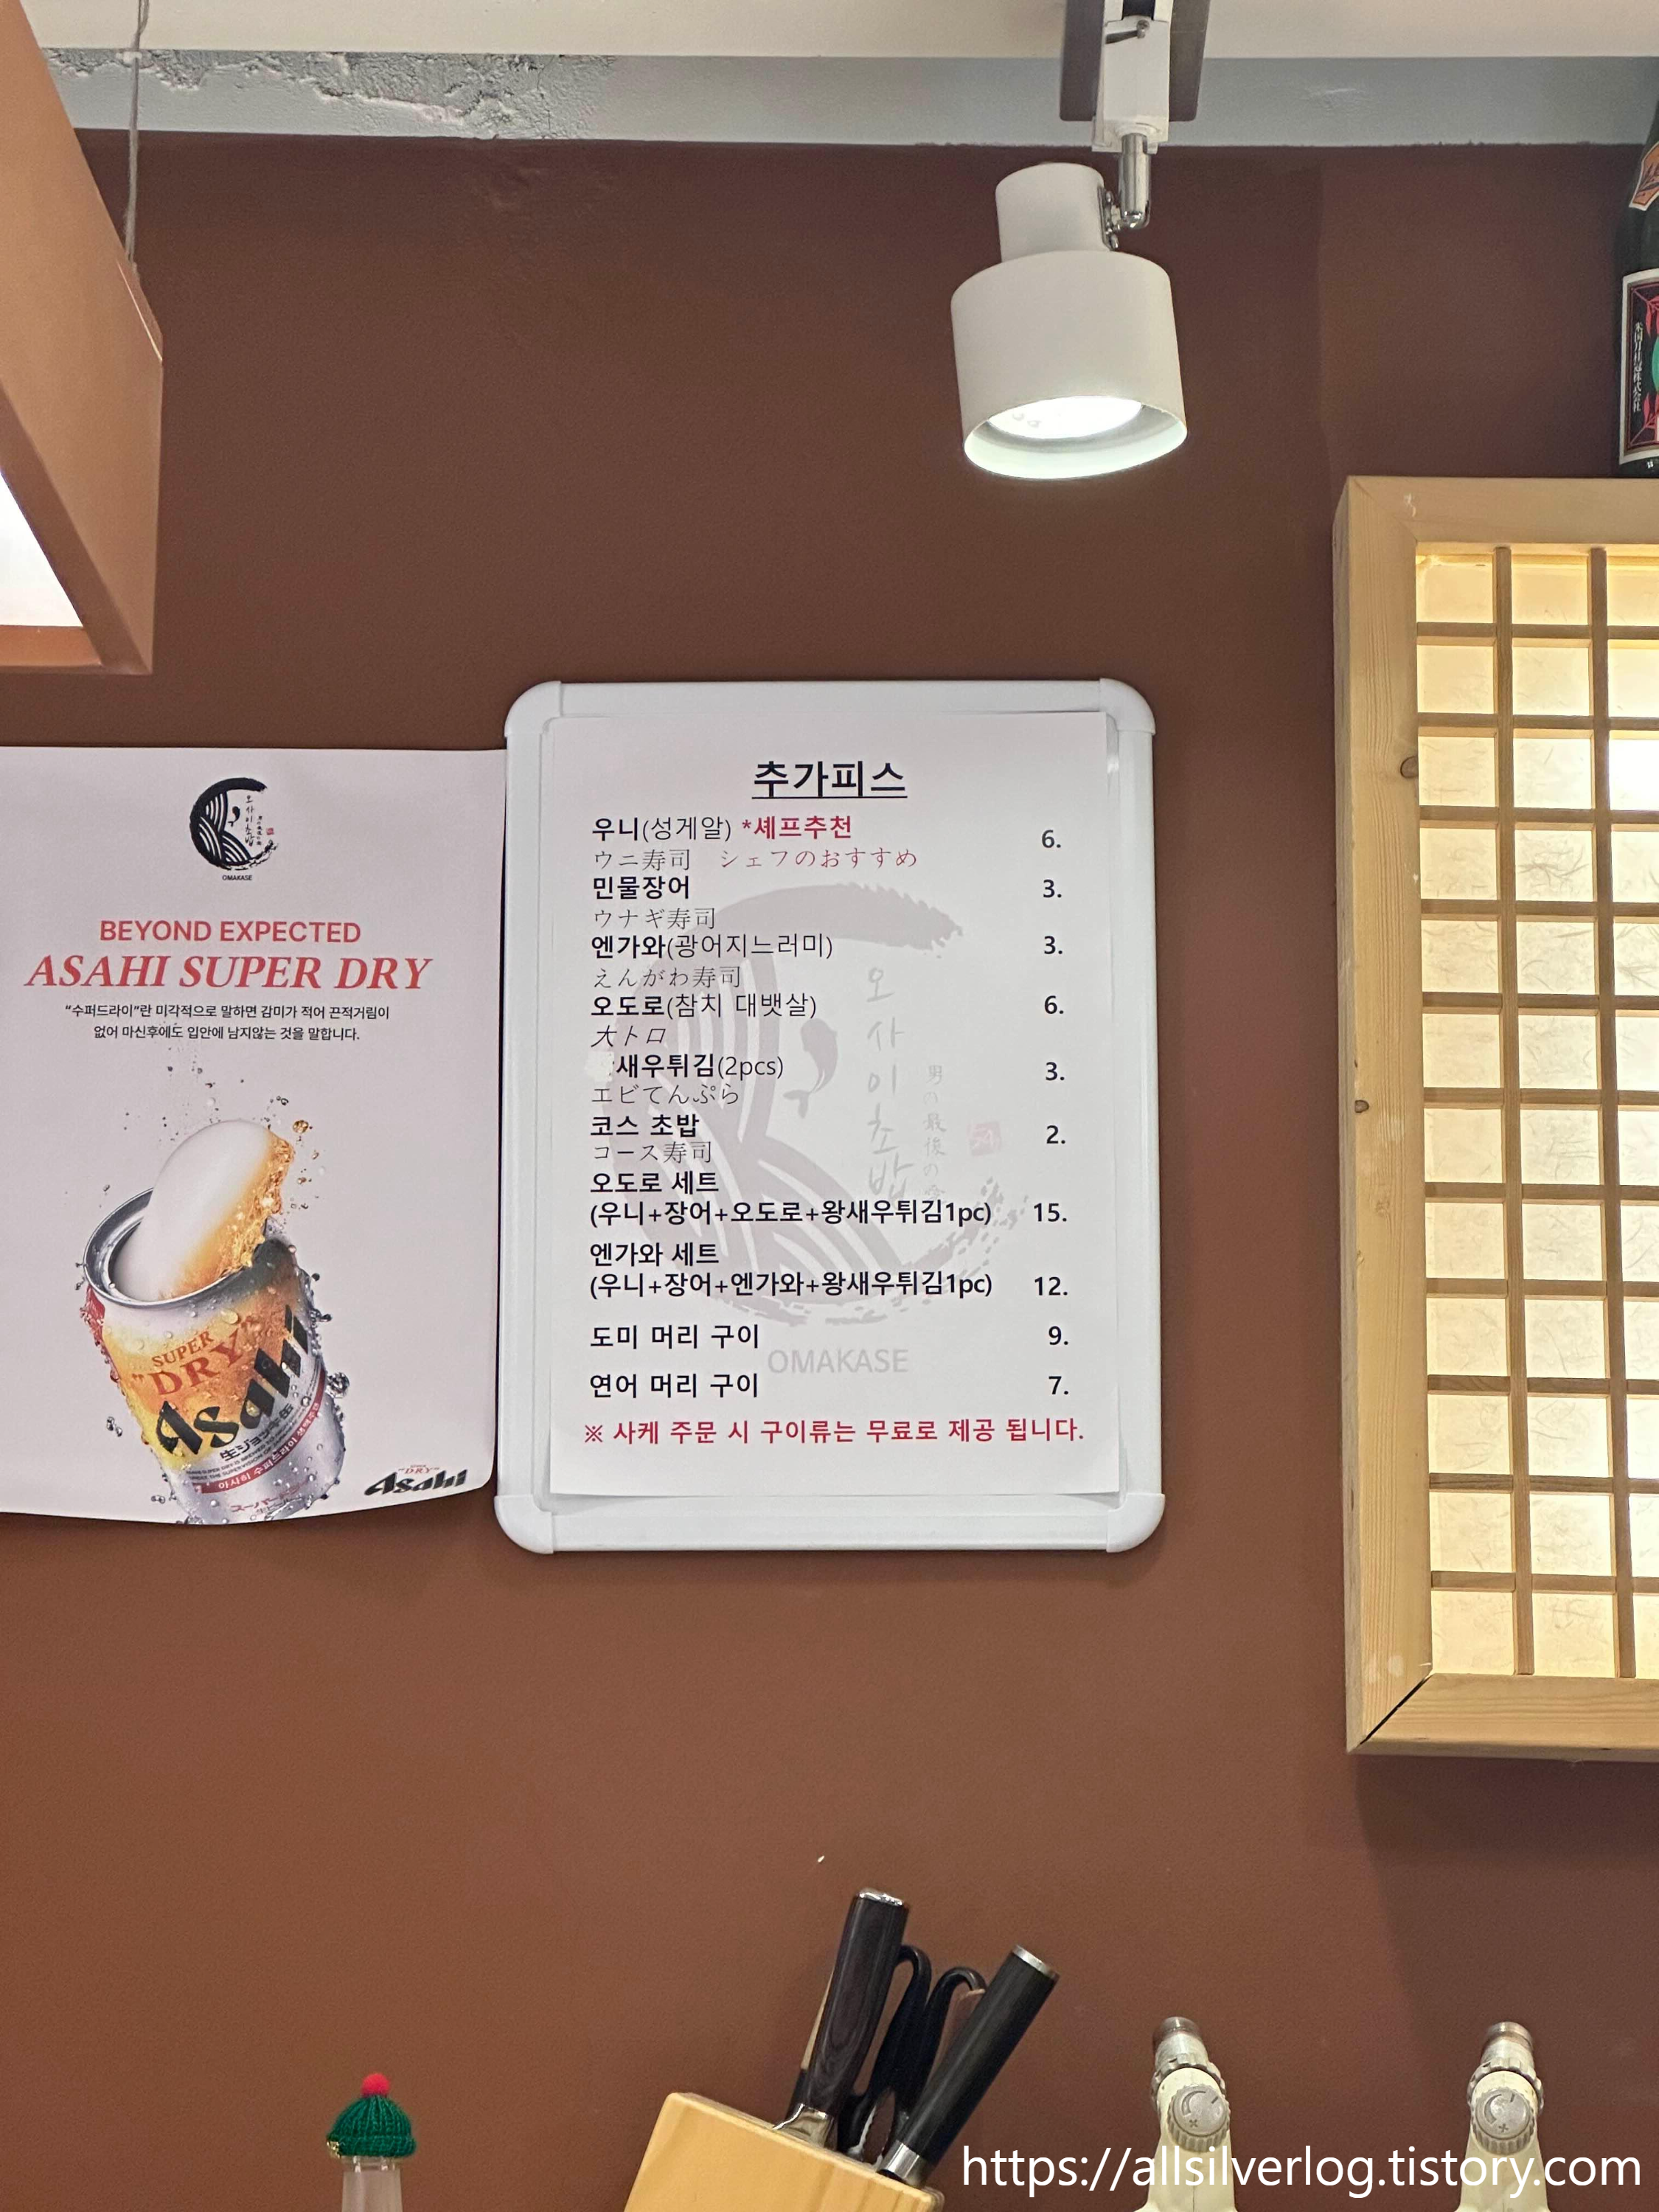 오사이초밥
OMAKASE
BEYOND EXPECTED
ASAHI SUPER DRY
“수퍼드라이”란 미각적으로 말하면 감미가 적어 끈적거림이
없어 마신후에도 입안에 남지않는 것을 말합니다.
SUPER
"DRY"
Asahi
生ジョッキ缶
아사히 수퍼드라이 생맥주캔
スーパー
Asahi
추가피스
우니(성게알) *셰프추천 6.
ウニ寿司 シェフのおすすめ
민물장어 3.
ウナギ寿司
엔가와(광어지느러미) 3.
えんがわ寿司
오도로(참치 대뱃살) 6.
大トロ
새우튀김(2pcs) 3.
エビてんぷら
코스 초밥 2.
コース寿司
오도로 세트
(우니+장어+오도로+왕새우튀김1pc) 15.
엔가와 세트
(우니+장어+엔가와+왕새우튀김1pc) 12.
도미 머리 구이 9.
연어 머리 구이 7.
※ 사케 주문 시 구이류는 무료로 제공 됩니다.
오사이초밥
男の最後の
OMAKASE
https://allsilverlog.tistory.com